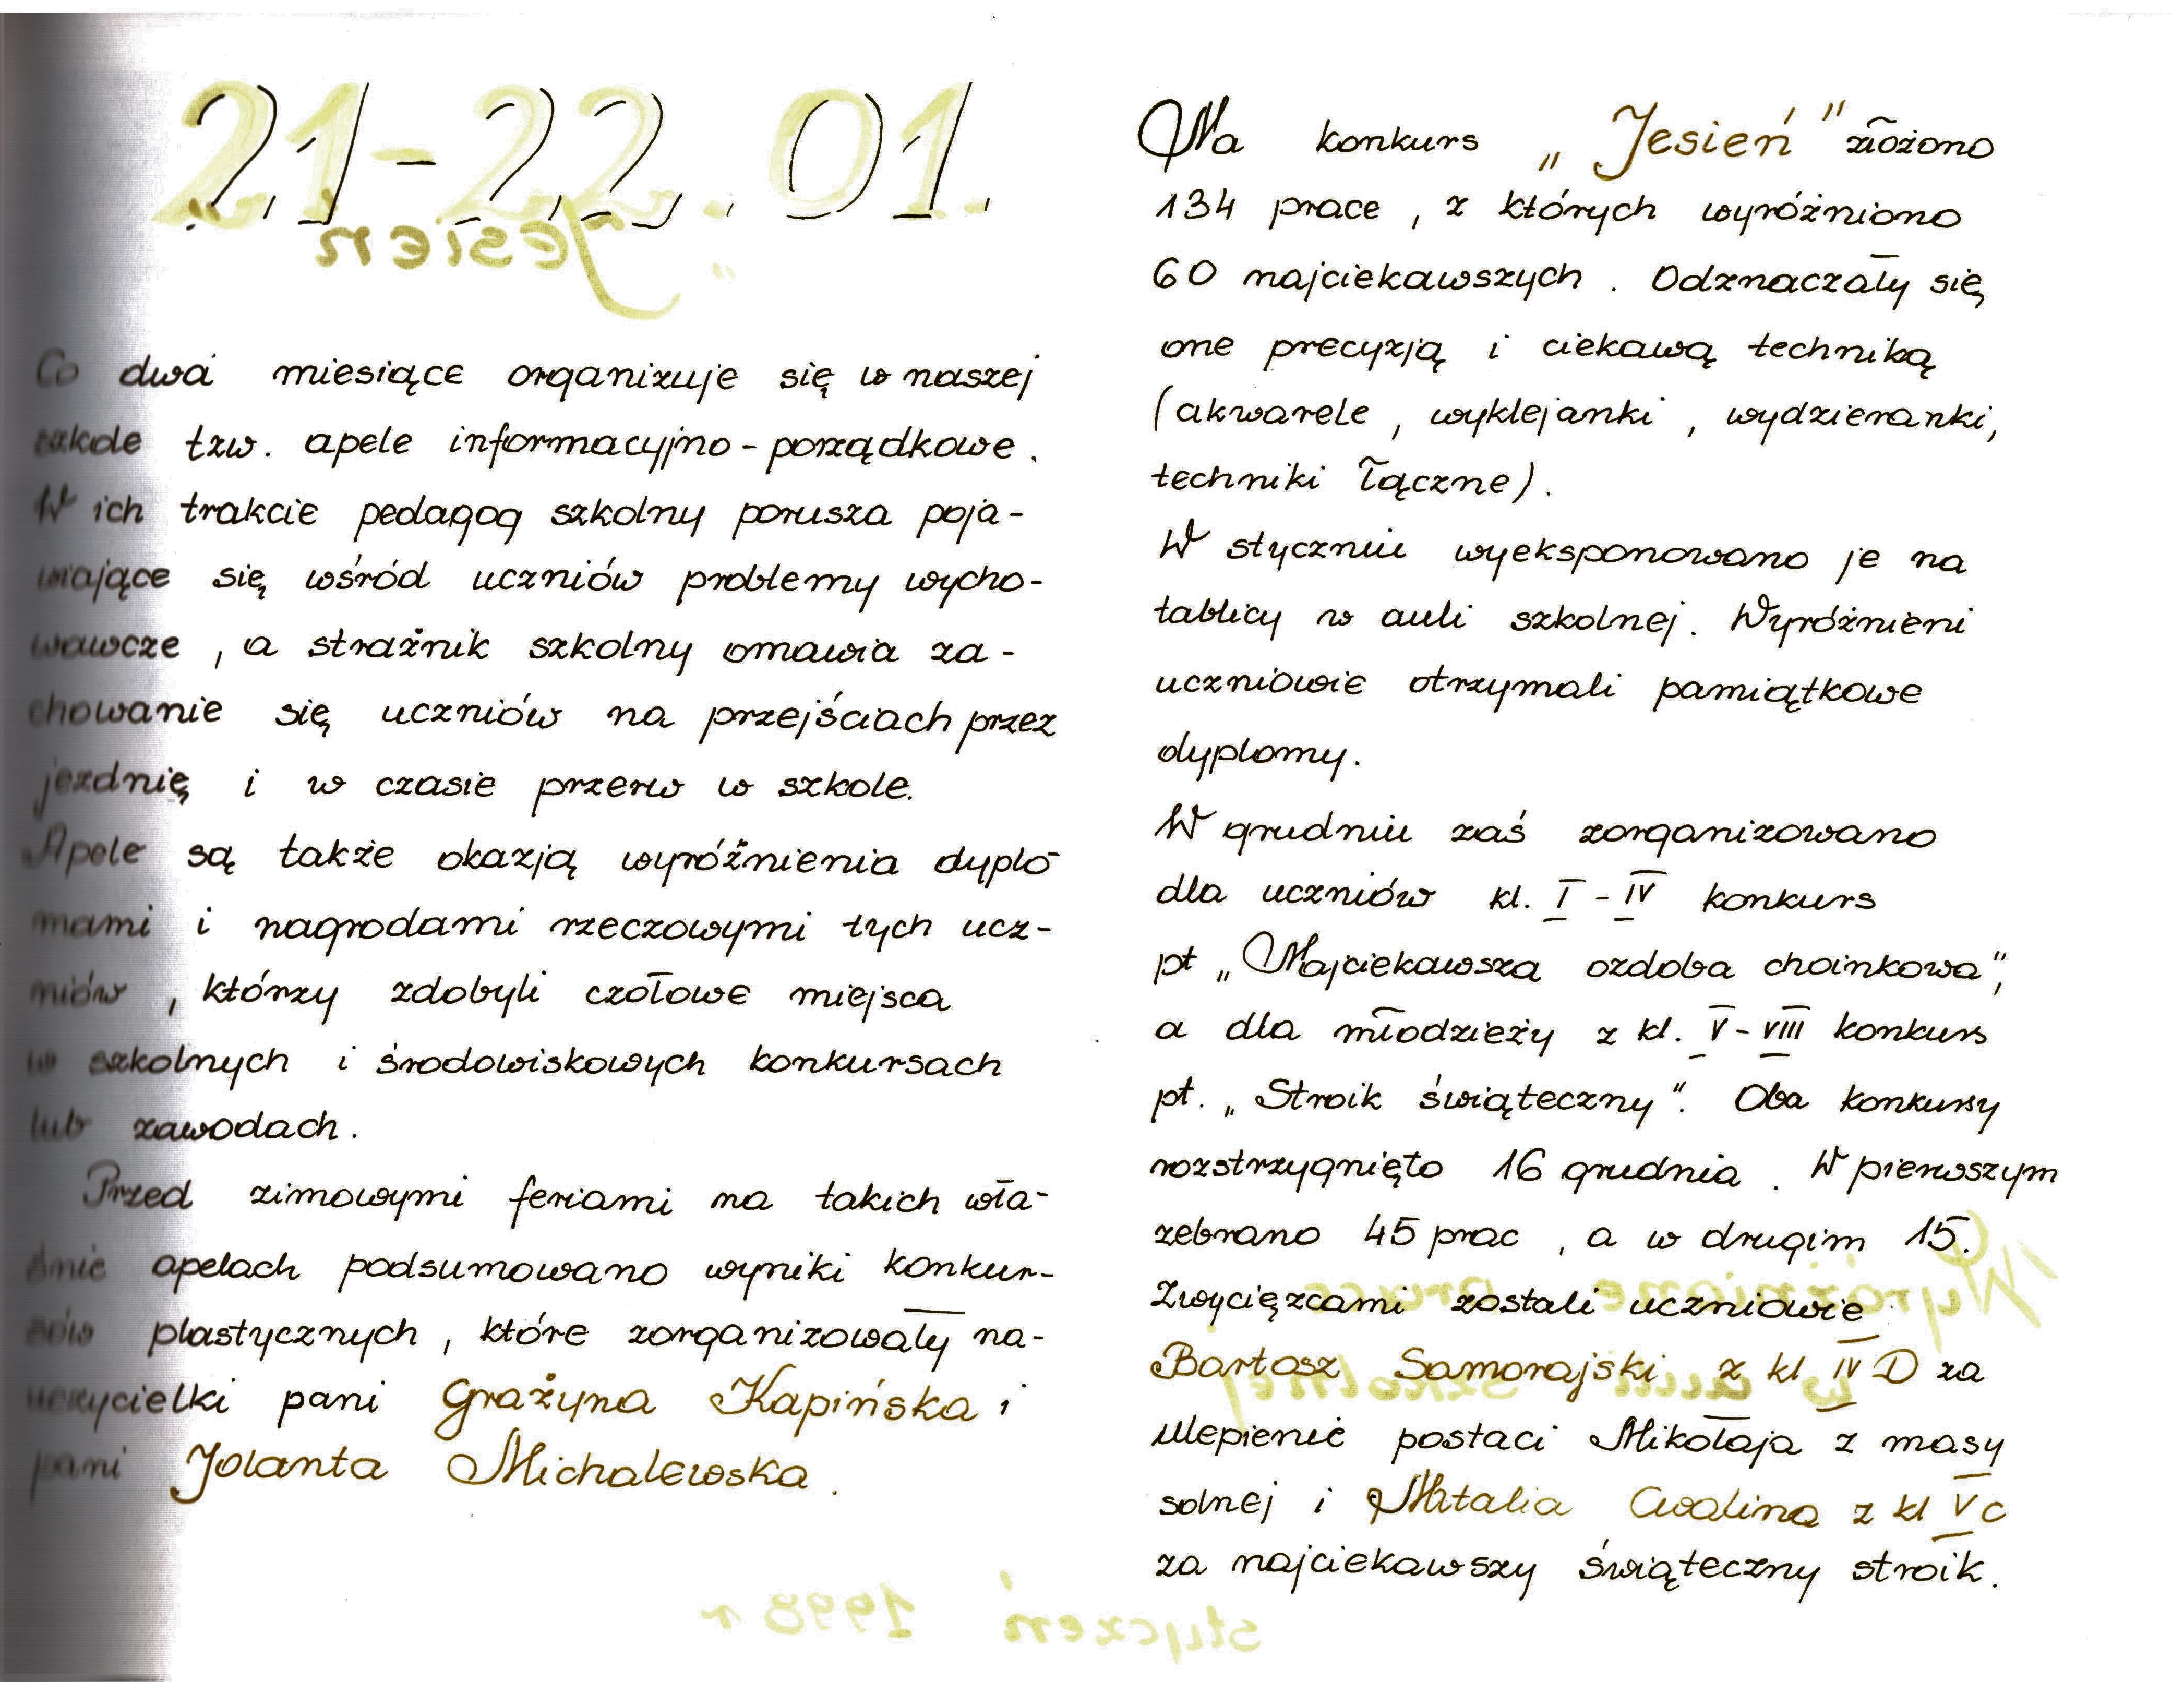 21-22.01.
Co dwa miesiące organizuje się w naszej
szkole tzw. apele informacyjno-porządkowe.
W ich trakcie pedagog szkolny porusza poja-
wiające się wśród uczniów problemy wycho-
wawcze, a strażnik szkolny omawia za-
chowanie się uczniów na przejściach przez
jezdnię i w czasie przerw w szkole.
Apele są także okazją wyróżnienia dyplo-
mami i nagrodami rzeczowymi tych ucz-
niów, którzy zdobyli czołowe miejsca
w szkolnych i środowiskowych konkursach
lub zawodach.
Przed zimowymi feriami na takich wła-
śnie apelach podsumowano wyniki konkur-
sów plastycznych, które zorganizowały na-
uczycielki pani Grażyna Kapińska i
pani Jolanta Michalewska.
Na konkurs „Jesień" złożono
134 prace, z których wyróżniono
60 najciekawszych. Odznaczały się
one precyzją i ciekawą techniką
(akwarele, wyklejanki, wydzieranki,
techniki łączne).
W styczniu wyeksponowano je na
tablicy w auli szkolnej. Wyróżnieni
uczniowie otrzymali pamiątkowe
dyplomy.
W grudniu zaś zorganizowano
dla uczniów kl. I-IV konkurs
pt „Najciekawsza ozdoba choinkowa",
a dla młodzieży z kl. V-VIII konkurs
pt. „Stroik świąteczny". Oba konkursy
rozstrzygnięto 16 grudnia. W pierwszym
zebrano 45 prac, a w drugim 15.
Zwycięzcami zostali uczniowie
Bartosz Samorajski z kl IV D za
ulepienie postaci Mikołaja z masy
solnej i Natalia Cwalina z kl V c
za najciekawszy świąteczny stroik.
„Jesień"
Wyróżnione prace
w auli szkolnej
styczeń 1998 r